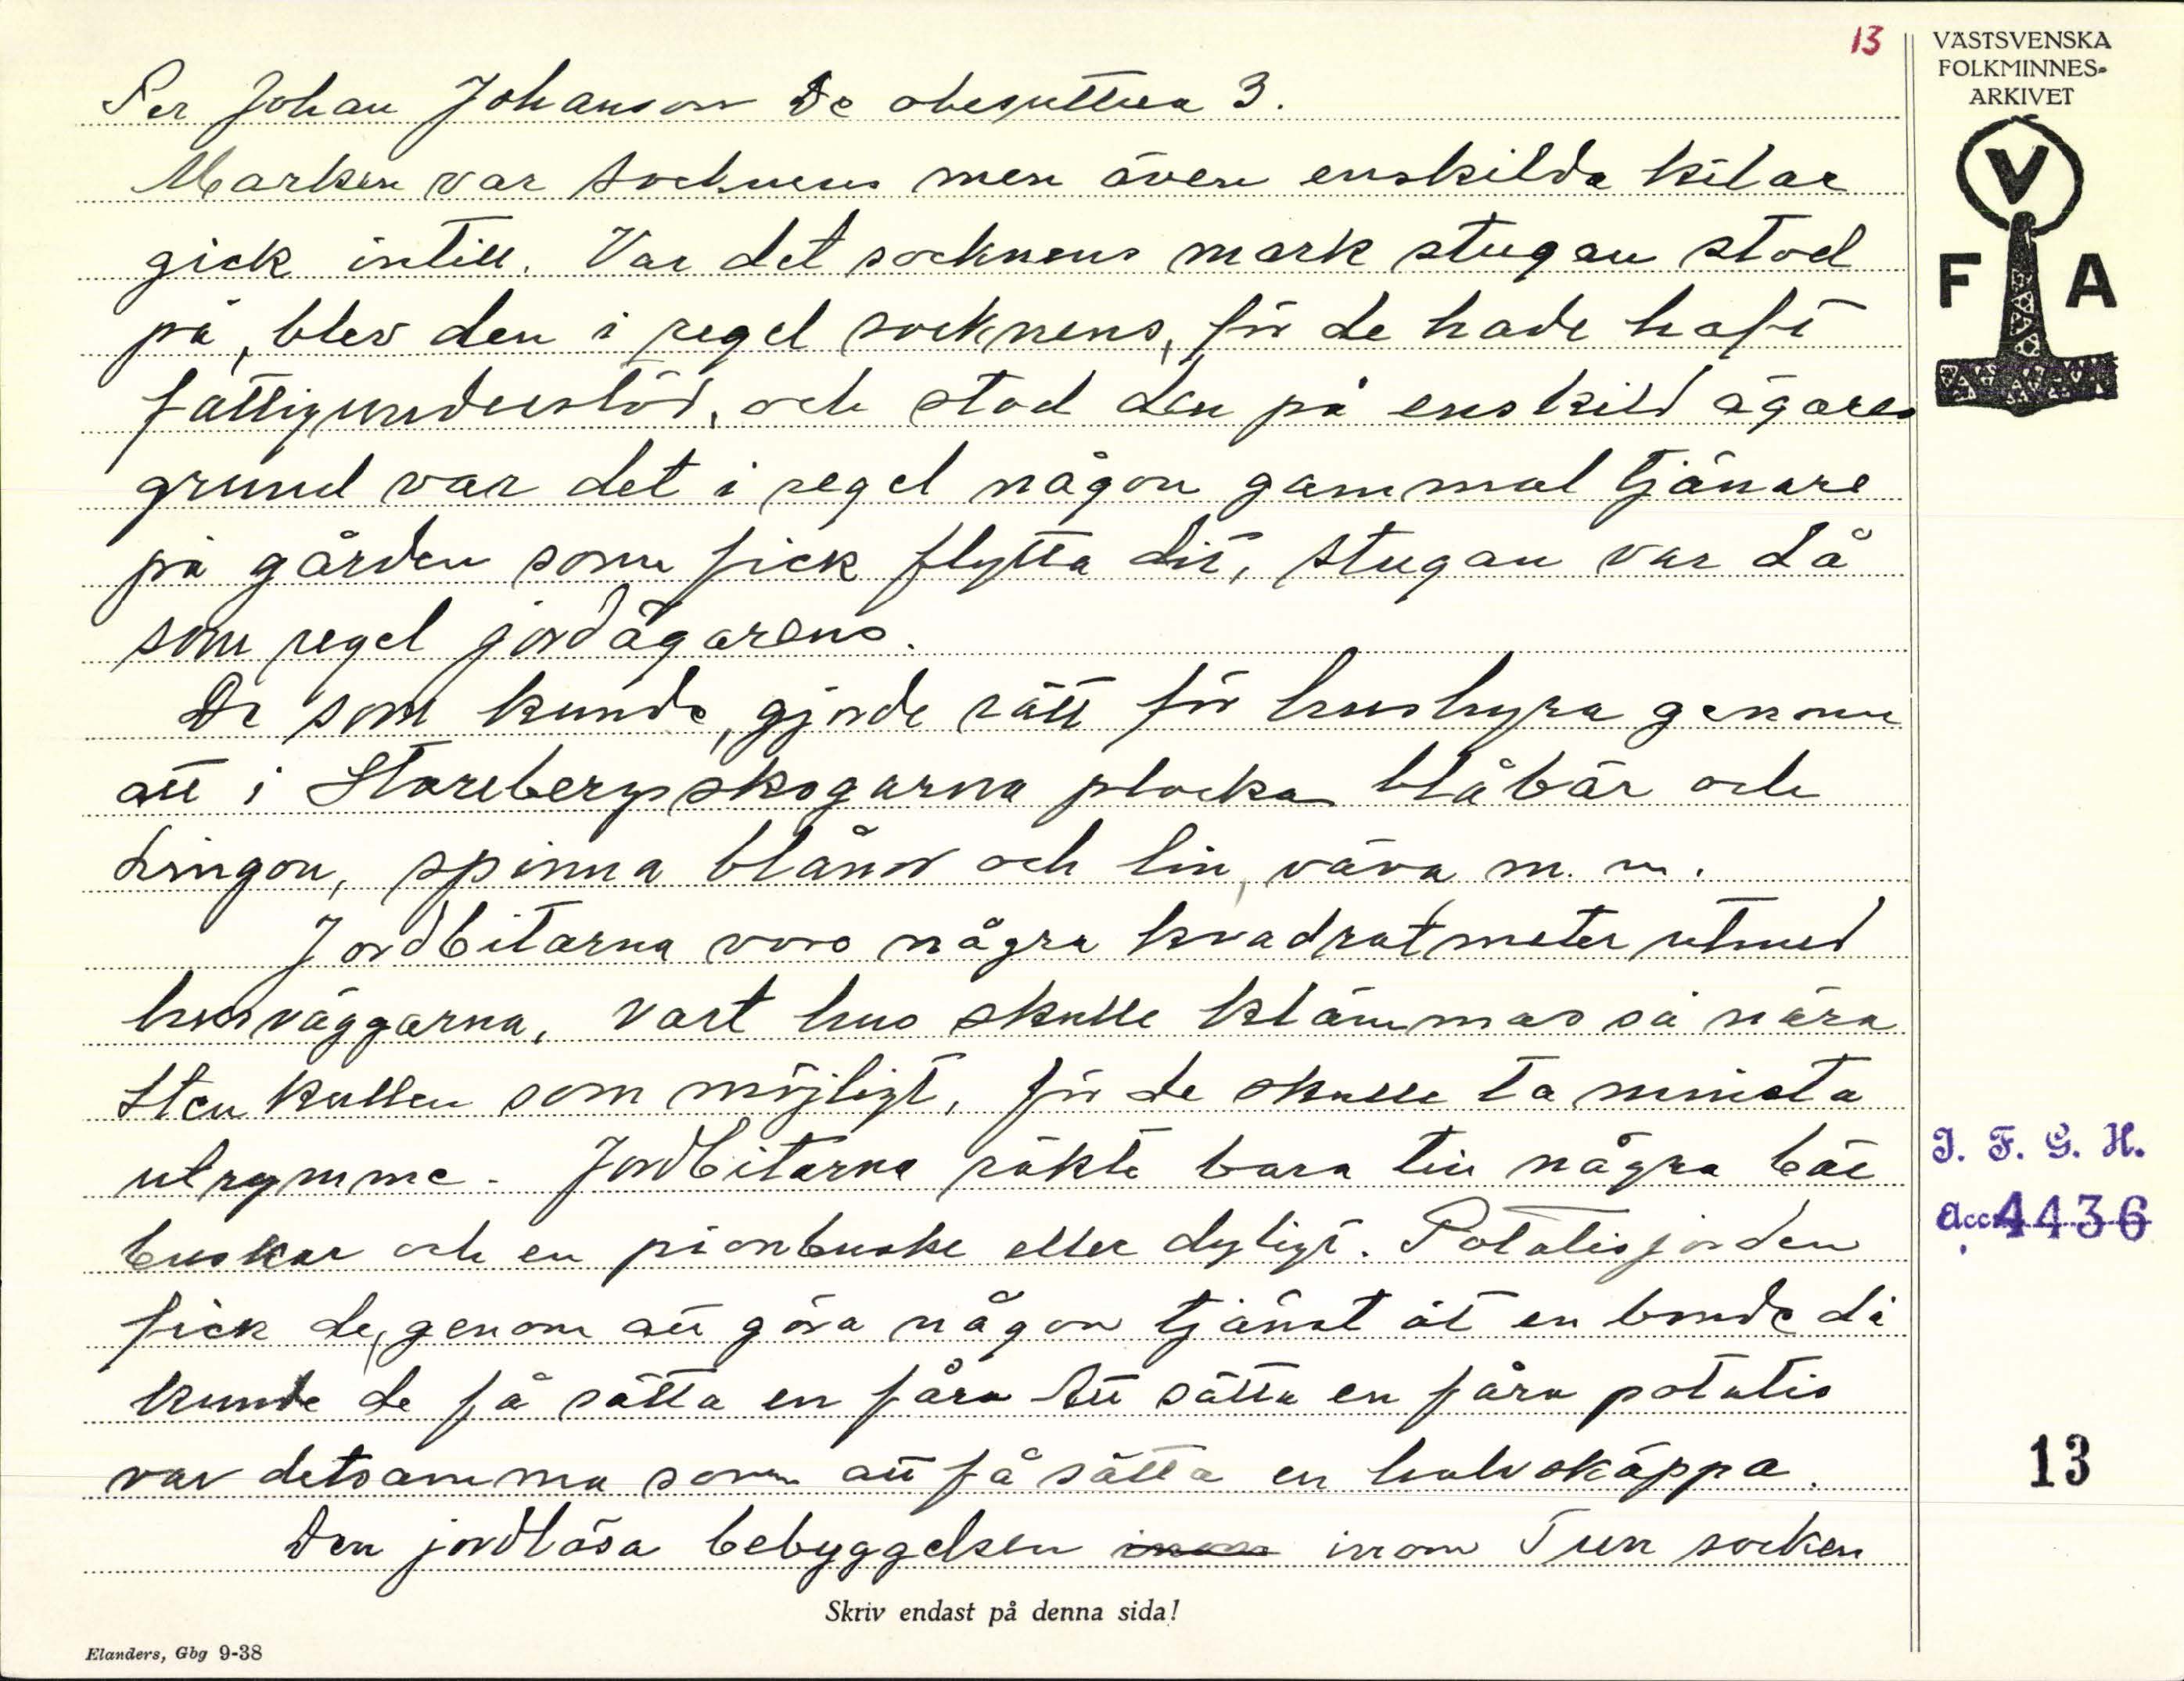 13
VÄSTSVENSKA
FOLKMINNES-
ARKIVET
V
F A
Per Johan Johanson De obesuttna 3.
Marken var socknens men även enskilda kilar
gick intill. Var det socknens mark stugan stod
på, blev den i regel socknens, för de hade haft
fattigunderstöd, och stod den på enskild ägares
grund var det i regel någon gammal tjänare
på gården som fick flytta dit, stugan var då
som regel jordägarens.
De som kunde, gjorde rätt för hushyra genom
att i Storebergsskogarna plocka blåbär och
Lingon, spinna blånor och lin, väva m. m.
Jordbitarna voro några kvadratmeter utmed
husväggarna, vart hus skulle klämmas så nära
Stenkullen som möjligt, för de skulle ta minsta
utrymme. Jordbitarna räkte bara till några bär
buskar och en pionbuske eller dyligt. Potatisjorden
fick de, genom att göra någon tjänst åt en bonde då
kunde de få sätta en fåra Att sätta en fåra potatis
var detsamma som att få sätta en halvskäppa.
Den jordlösa bebyggelsen inom inom Tun socken
I. F. G. H.
Acc 4436
13
Skriv endast på denna sida!
Elanders, Gbg 9-38